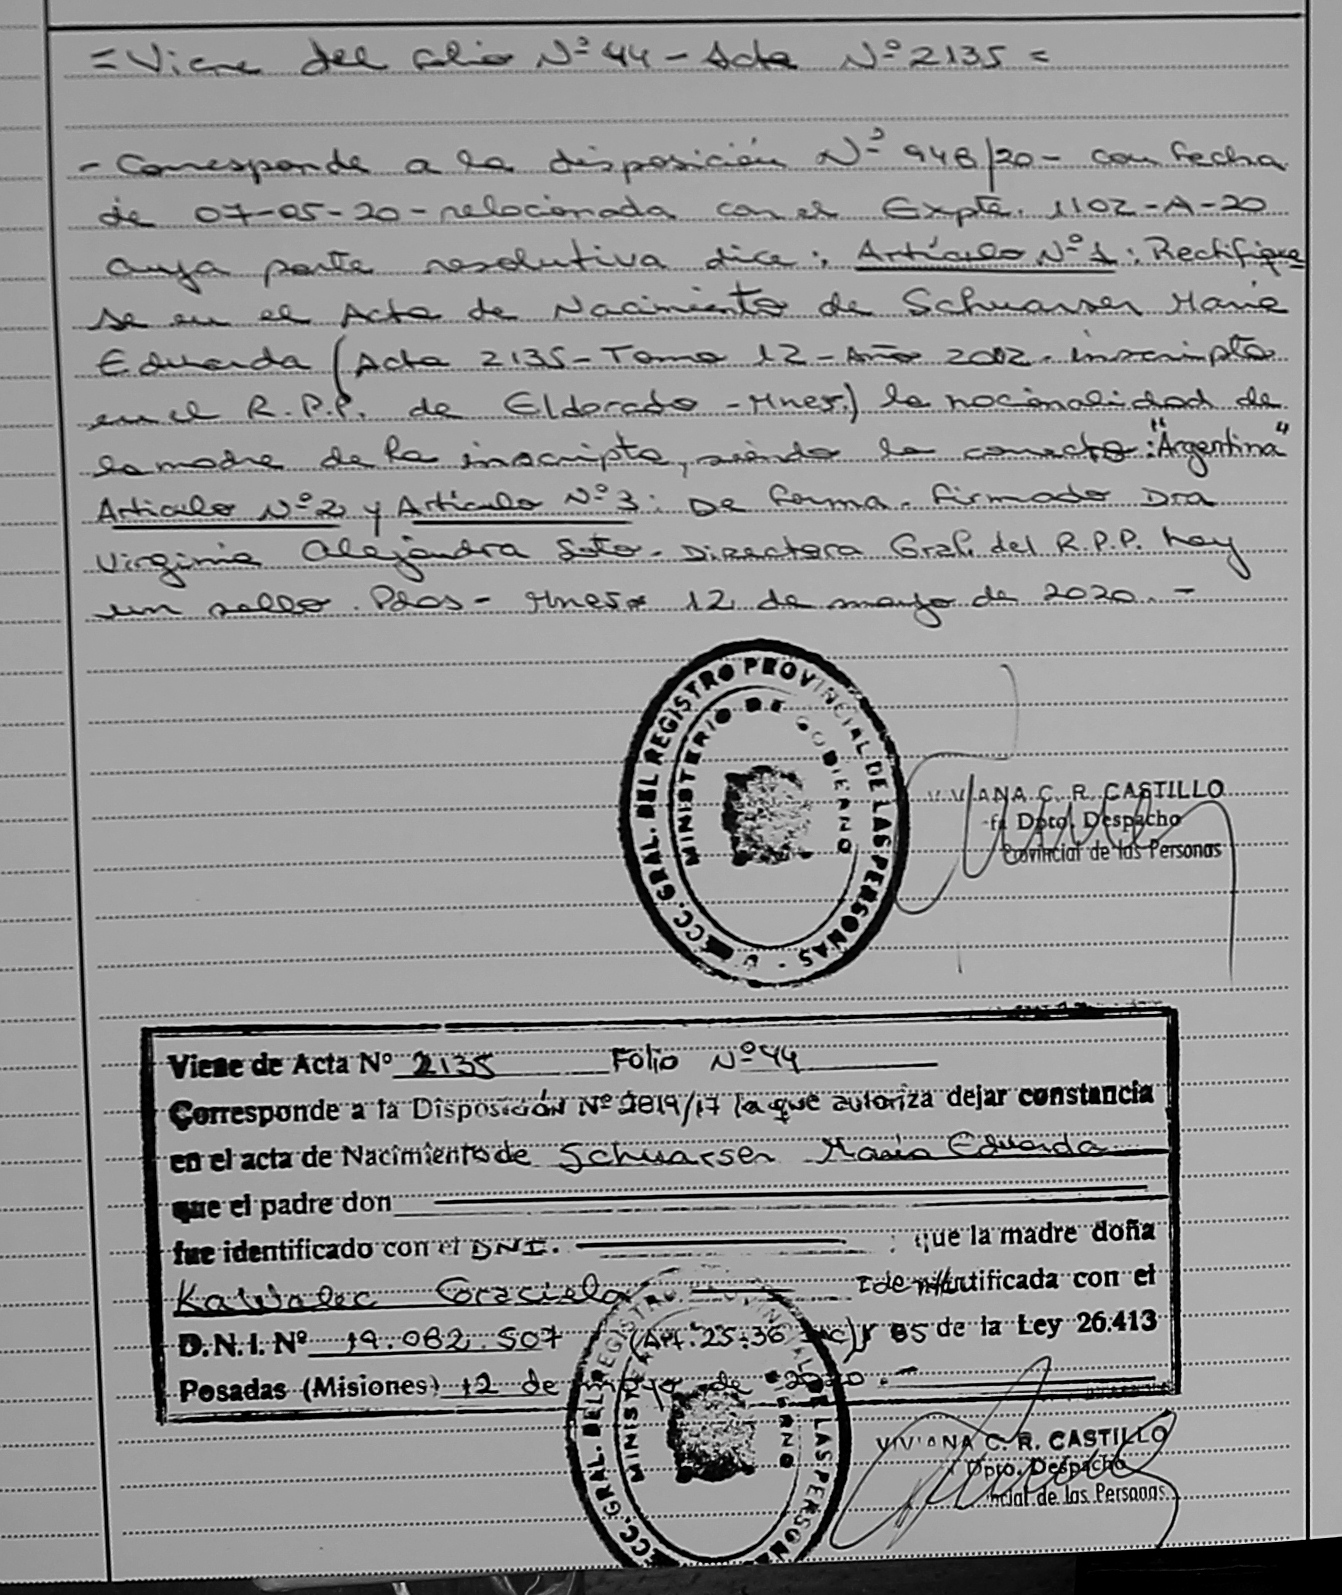 = Viene del folio Nº 44 - Acta Nº 2135 =
- Corresponde a la disposición Nº 948/20 - con fecha
de 07-05-20 - relacionada con el Expte. 1102-A-20
cuya parte resolutiva dice: Artículo Nº 1: Rectifique
se en el Acta de Nacimiento de Schuarser María
Eduarda (Acta 2135 - Tomo 12 - Año 2002. inscripta
en el R.P.P. de Eldorado - Mnes.) la nacionalidad de
la madre de la inscripta, siendo la correcta: "Argentina"
Articulo Nº 2 y Artículo Nº 3: De forma. Firmado Dra
Virginia Alejandra Soto. Directora Gral. del R.P.P. hay
un sello. Pdas - Mnes. 12 de mayo de 2020. -
CC. GRAL. DEL REGISTRO PROVINCIAL DE LAS PERSONAS -
MINISTERIO DE GOBIERNO
VIVIANA C. R. CASTILLO
Dpto. Despacho
Provincial de las Personas
Viene de Acta Nº 2135 Folio Nº 44
Corresponde a la Disposición Nº 2819/17 la que autoriza dejar constancia
en el acta de Nacimiento de Schuarser María Eduarda
que el padre don
fue identificado con el DNI. ; que la madre doña
Kawalec Graciela identificada con el
D.N.I. Nº 19.082.507 (Art. 25.36 Inc) y 85 de la Ley 26.413
Posadas (Misiones) 12 de mayo de 2020.-
CC. GRAL. DEL REGISTRO PROVINCIAL DE LAS PERSONAS
VIVIANA C. R. CASTILLO
Dpto. Despacho
ncial de las Personas